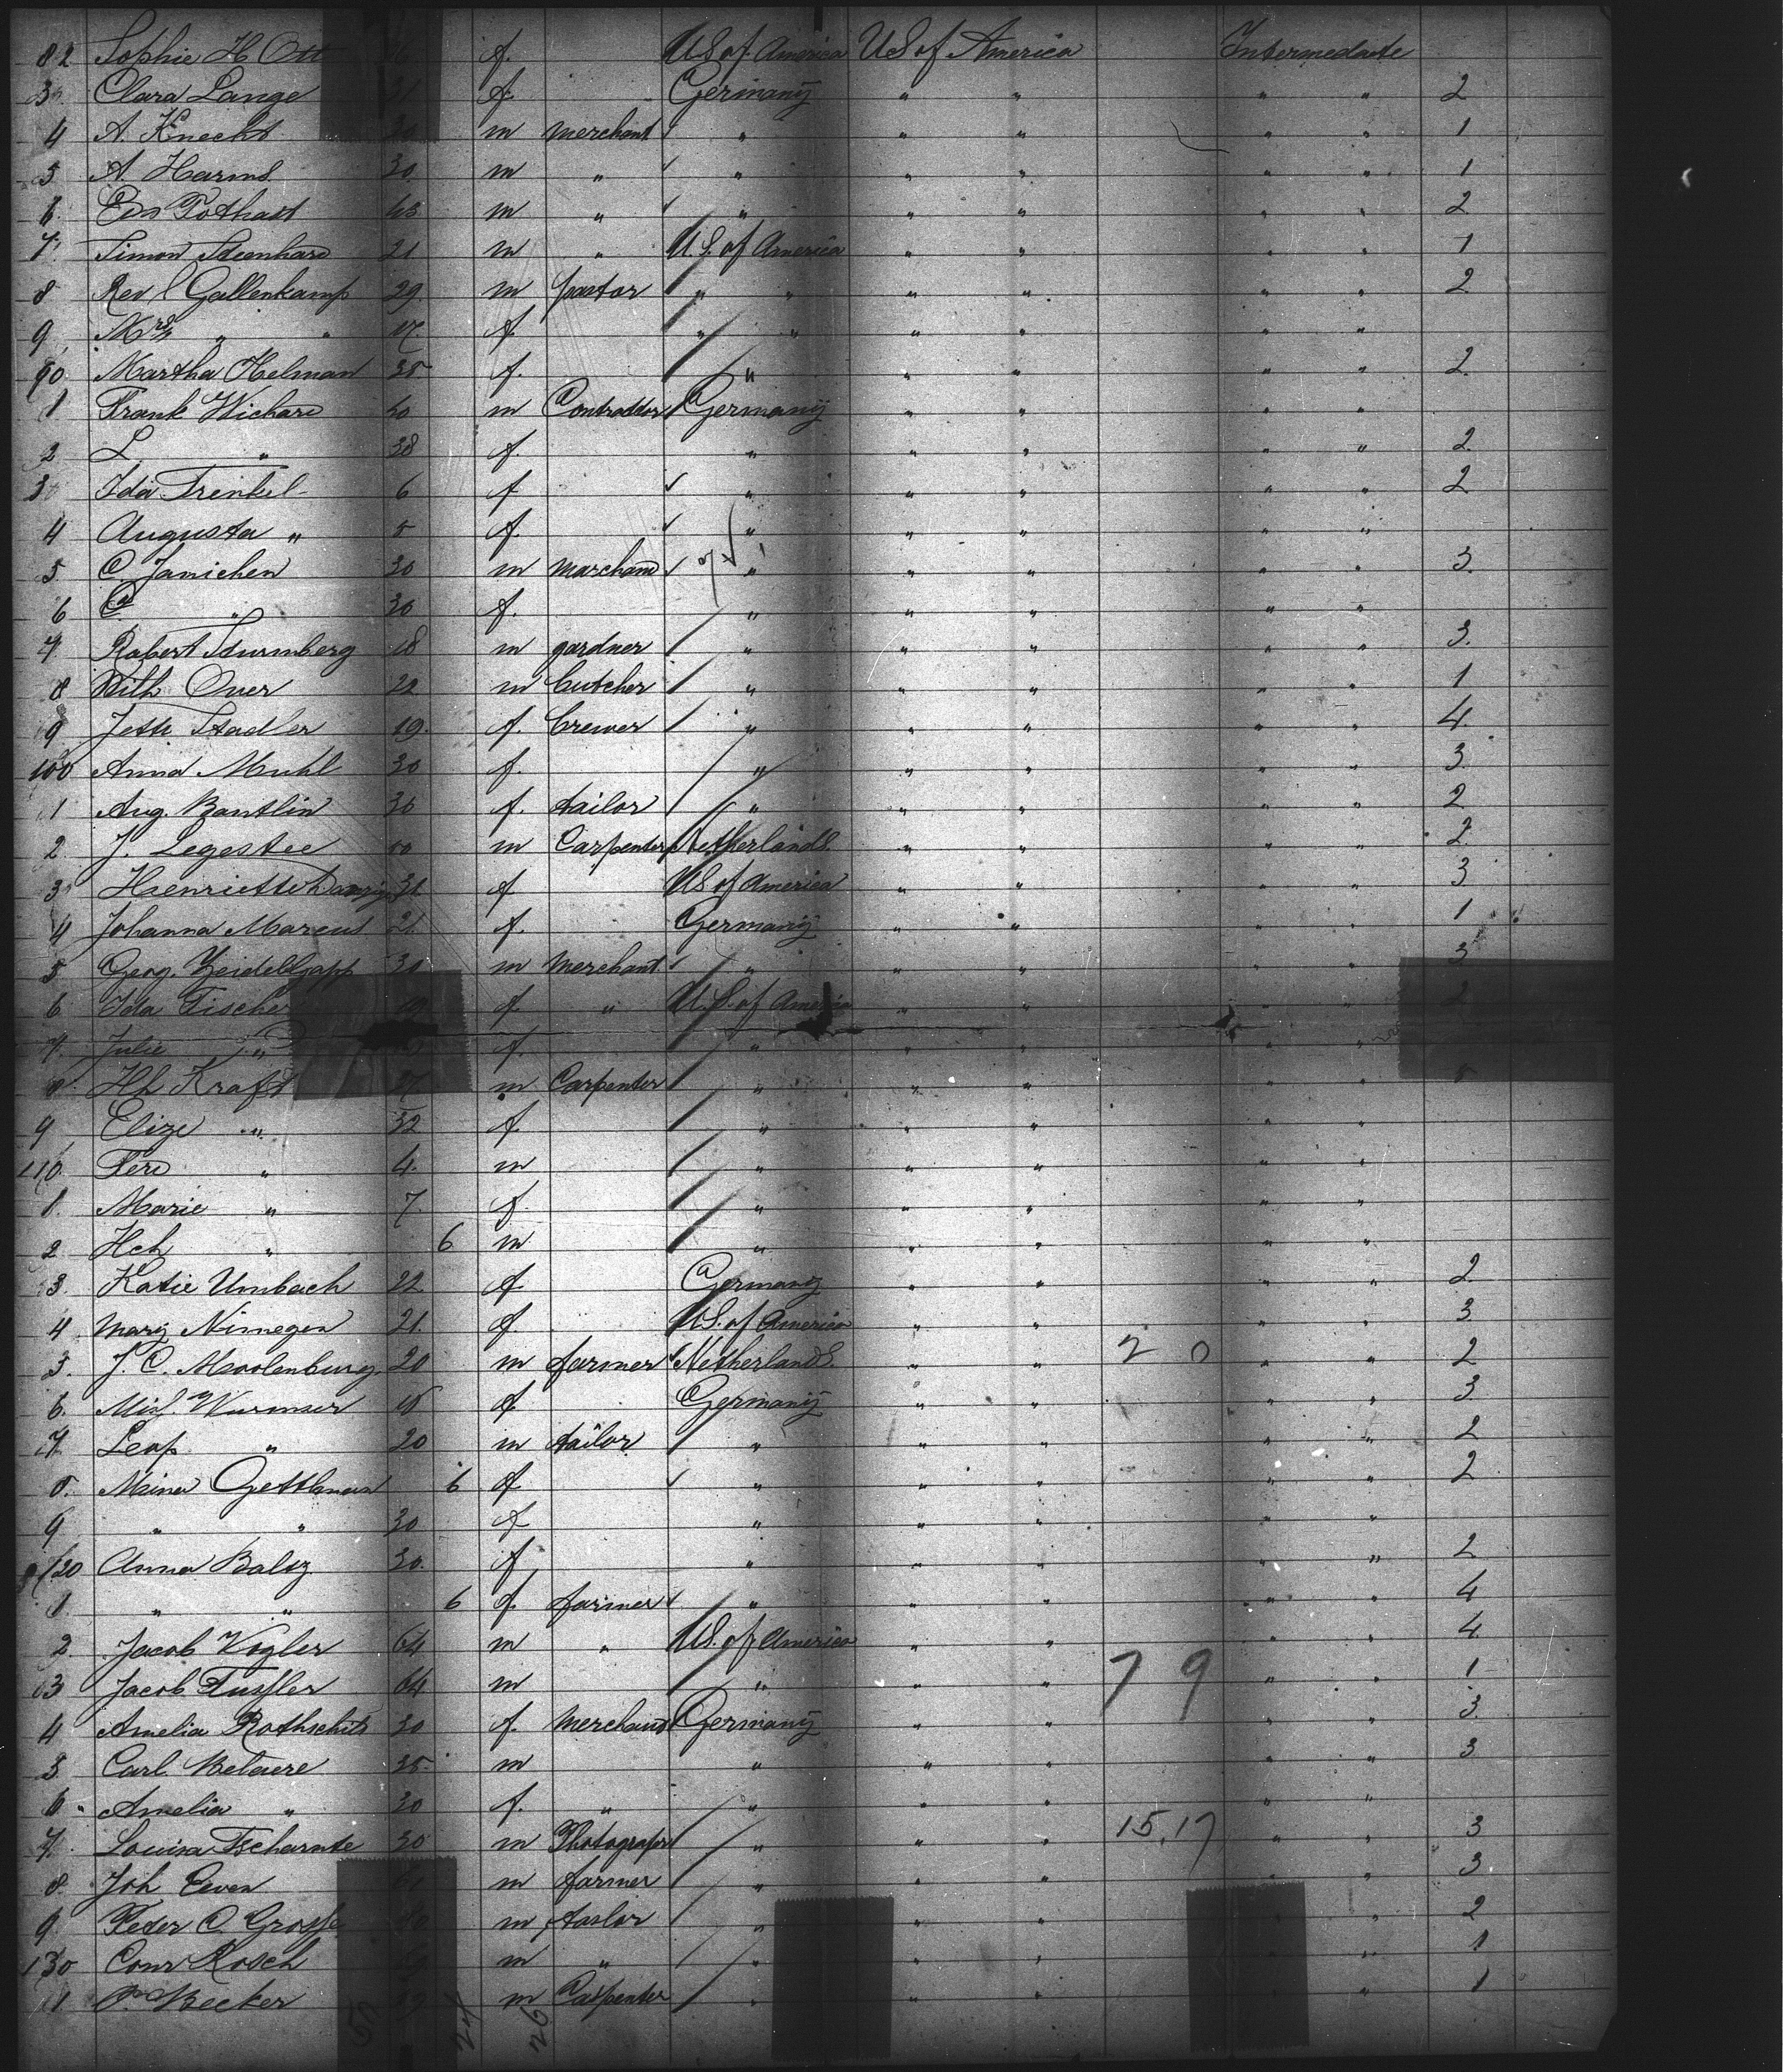 82 Sophie H Ott f. U.S of America U.S of America Intermediate
3 Clara Lange 31 f. Germany " " " " 2
4 A. Knecht 30 m merchant " " " " " 1
5 A. Harms 30 m " " " " " " 1
6 Edw Pothast 43 m " " " " " " 2
7 Simon Steenhard 21 m " U.S. of America " " " " 1
8 Rev C Gallenkamp 29 m pastor " " " " " " 2
9 Mrs " " 17 f. " " " " " "
90 Martha Helman 35 f. " " " " " 2
1 Frank Wichard 40 m Contrattor Germany " " " "
2 L " 38 f. " " " " " 2
3 Ida Trenkel 6 f " " " " " 2
4 Augusta " 5 f. " " " " "
5 C. Jamichen 30 m marchand " " " " " 3
6 C " 30 f. " " " " "
7 Robert Sturmberg 18 m gardner " " " " " 3.
8 Wilh Over 22 m butcher " " " " " 1
9 Jette Stadler 19. f. brewer " " " " " 4
100 Anna Muhl 30 f. " " " " " 3
1 Aug. Bantlin 30 f. tailor " " " " " 2
2 J. Legestee m Carpenter Netherlands. " " " " 2
3 Henriette 31 f U.S of America " " " " 3
4 Johanna Marcus 21. f. Germany " " " " 1
5 Georg. m Merchant " " " " " 3
6 Ida Fischer 19 f. " U.S. of America " " " " 2
7. Julie " f. " " " " "
8 Hh Kraft 27 m Carpenter " " " " " 5
9 Elize " 32 f " " " " "
110 Ferd " 4. m " " " " "
1. Marie " 7. f. " " " " "
2 Hch " 6 m " " " " "
3. Katie Umbach 22. f Germany " " " " 2
4 Mary Nimegen 21. f. U.S. of America " " " " 3
5. J. C. Moolenburg. 20 m farmer Netherlands. " " 2 0 " " 2
6. Mich. Wurmser 18 f. Germany " " " " 3
7. Leop " 20 m tailor " " " " " 2
8. Mina Gettleman 6 f " " " " " 2
9 " " 30 f " " " " "
120 Anna Balsz 30. f " " " " " 2
1. " " 6 f. farmer " " " " " 4
2. Jacob Vogler 64 m " U.S. of America " " " " 4
3 Jacob Fussler 64 m " " " 7 9 " " 1
4 Amelia Rothschild 30 f. merchand Germany " " " " 3
5 Carl 35. m " " " " " 3
6 Amelia " 30 f. " " " " " "
7. Louisa Tscharnte 30 m Photograper " " " 15.17 " " 3
8. Joh Ewen 61 m farmer " " " " " 3
9. Peter C. Grosse m taslor " " " " " 2
130 Conr Rosch m " " " " " " 1
1 P. Becker 19 m Carpenter " " " " " 1
24 26